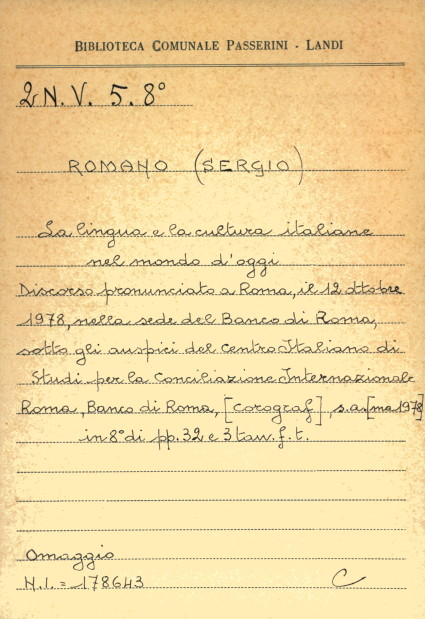 BIBLIOTECA COMUNALE PASSERINI - LANDI
2 N. V. 5. 8°
ROMANO (SERGIO)
La lingua e la cultura italiane
nel mondo d'oggi
Discorso pronunciato a Roma, il 12 ottobre
1978, nella sede del Banco di Roma,
sotto gli auspici del Centro Italiano di
Studi per la Conciliazione Internazionale
Roma, Banco di Roma, [Corograf], s.a. [ma 1978]
in 8° di pp. 32 e 3 tav. f. t.
Omaggio
N.I. = 178643 C